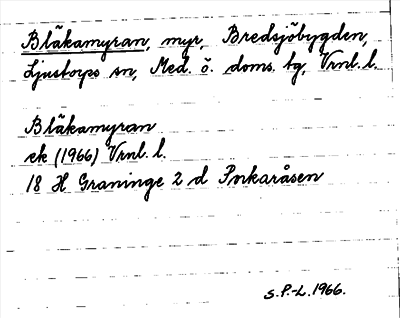 Bläkamyran, myr, Bredsjöbygden,
Ljustorps sn, Med. ö. doms. tg, Vrnl. l.
Bläkamyran
ek (1966) Vrnl. l.
18 H Graninge 2 d Porkaråsen
S.P.-L. 1966.